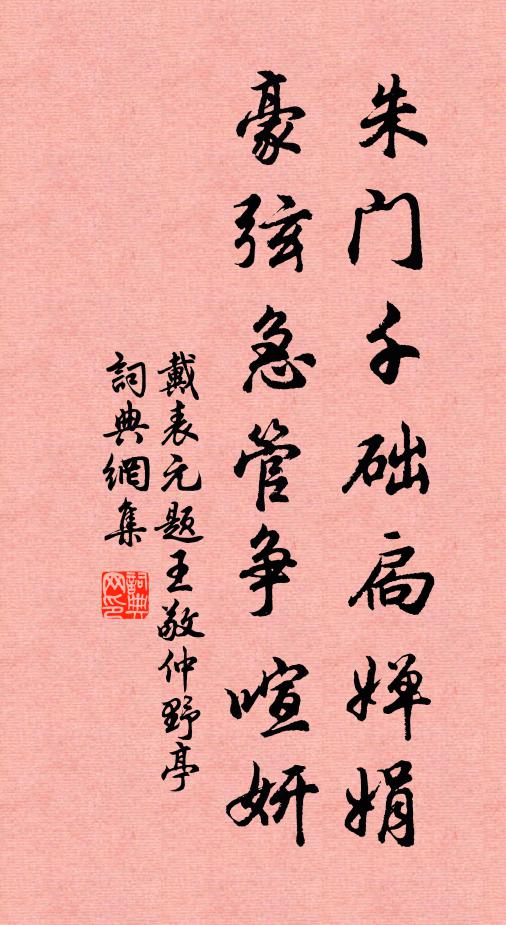 朱门千础扃婵娟
豪弦急管争喧妍
戴表元题王敬仲野亭
詞典網集
詞典网印